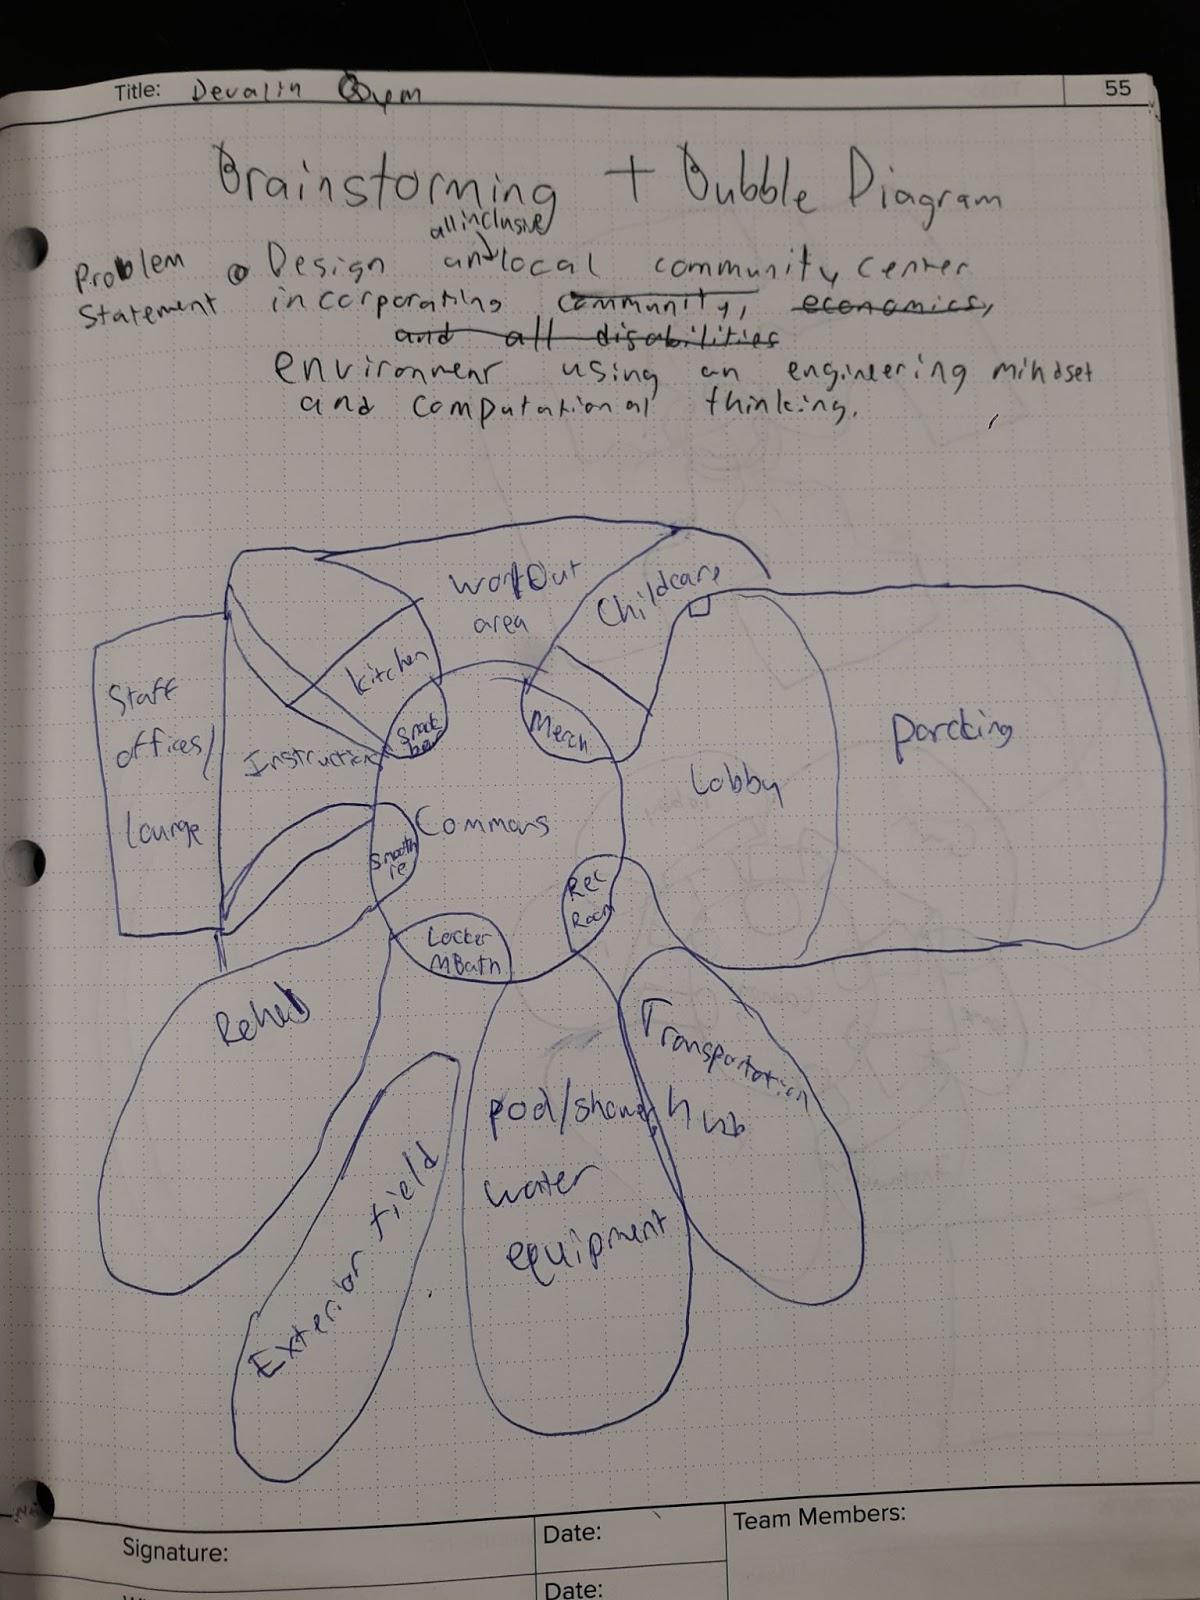 Title: Devalin Gym
55
Brainstorming + Bubble Diagram
all inclusive
Problem
Statement
Design an local community center
incorporating community, economics,
and all disabilities
environment using an engineering mindset
and computational thinking.
Workout
area
Childcare
Kitchen
Staff
offices/
Lounge
Instruction
Snack
bar
Merch
Parcking
Lobby
Commons
Smooth
ie
Rec
Room
Locker
Bath
Rehab
Transportation
hub
pool/shower
water
equipment
Exterior field
Signature:
Date:
Team Members:
Date: